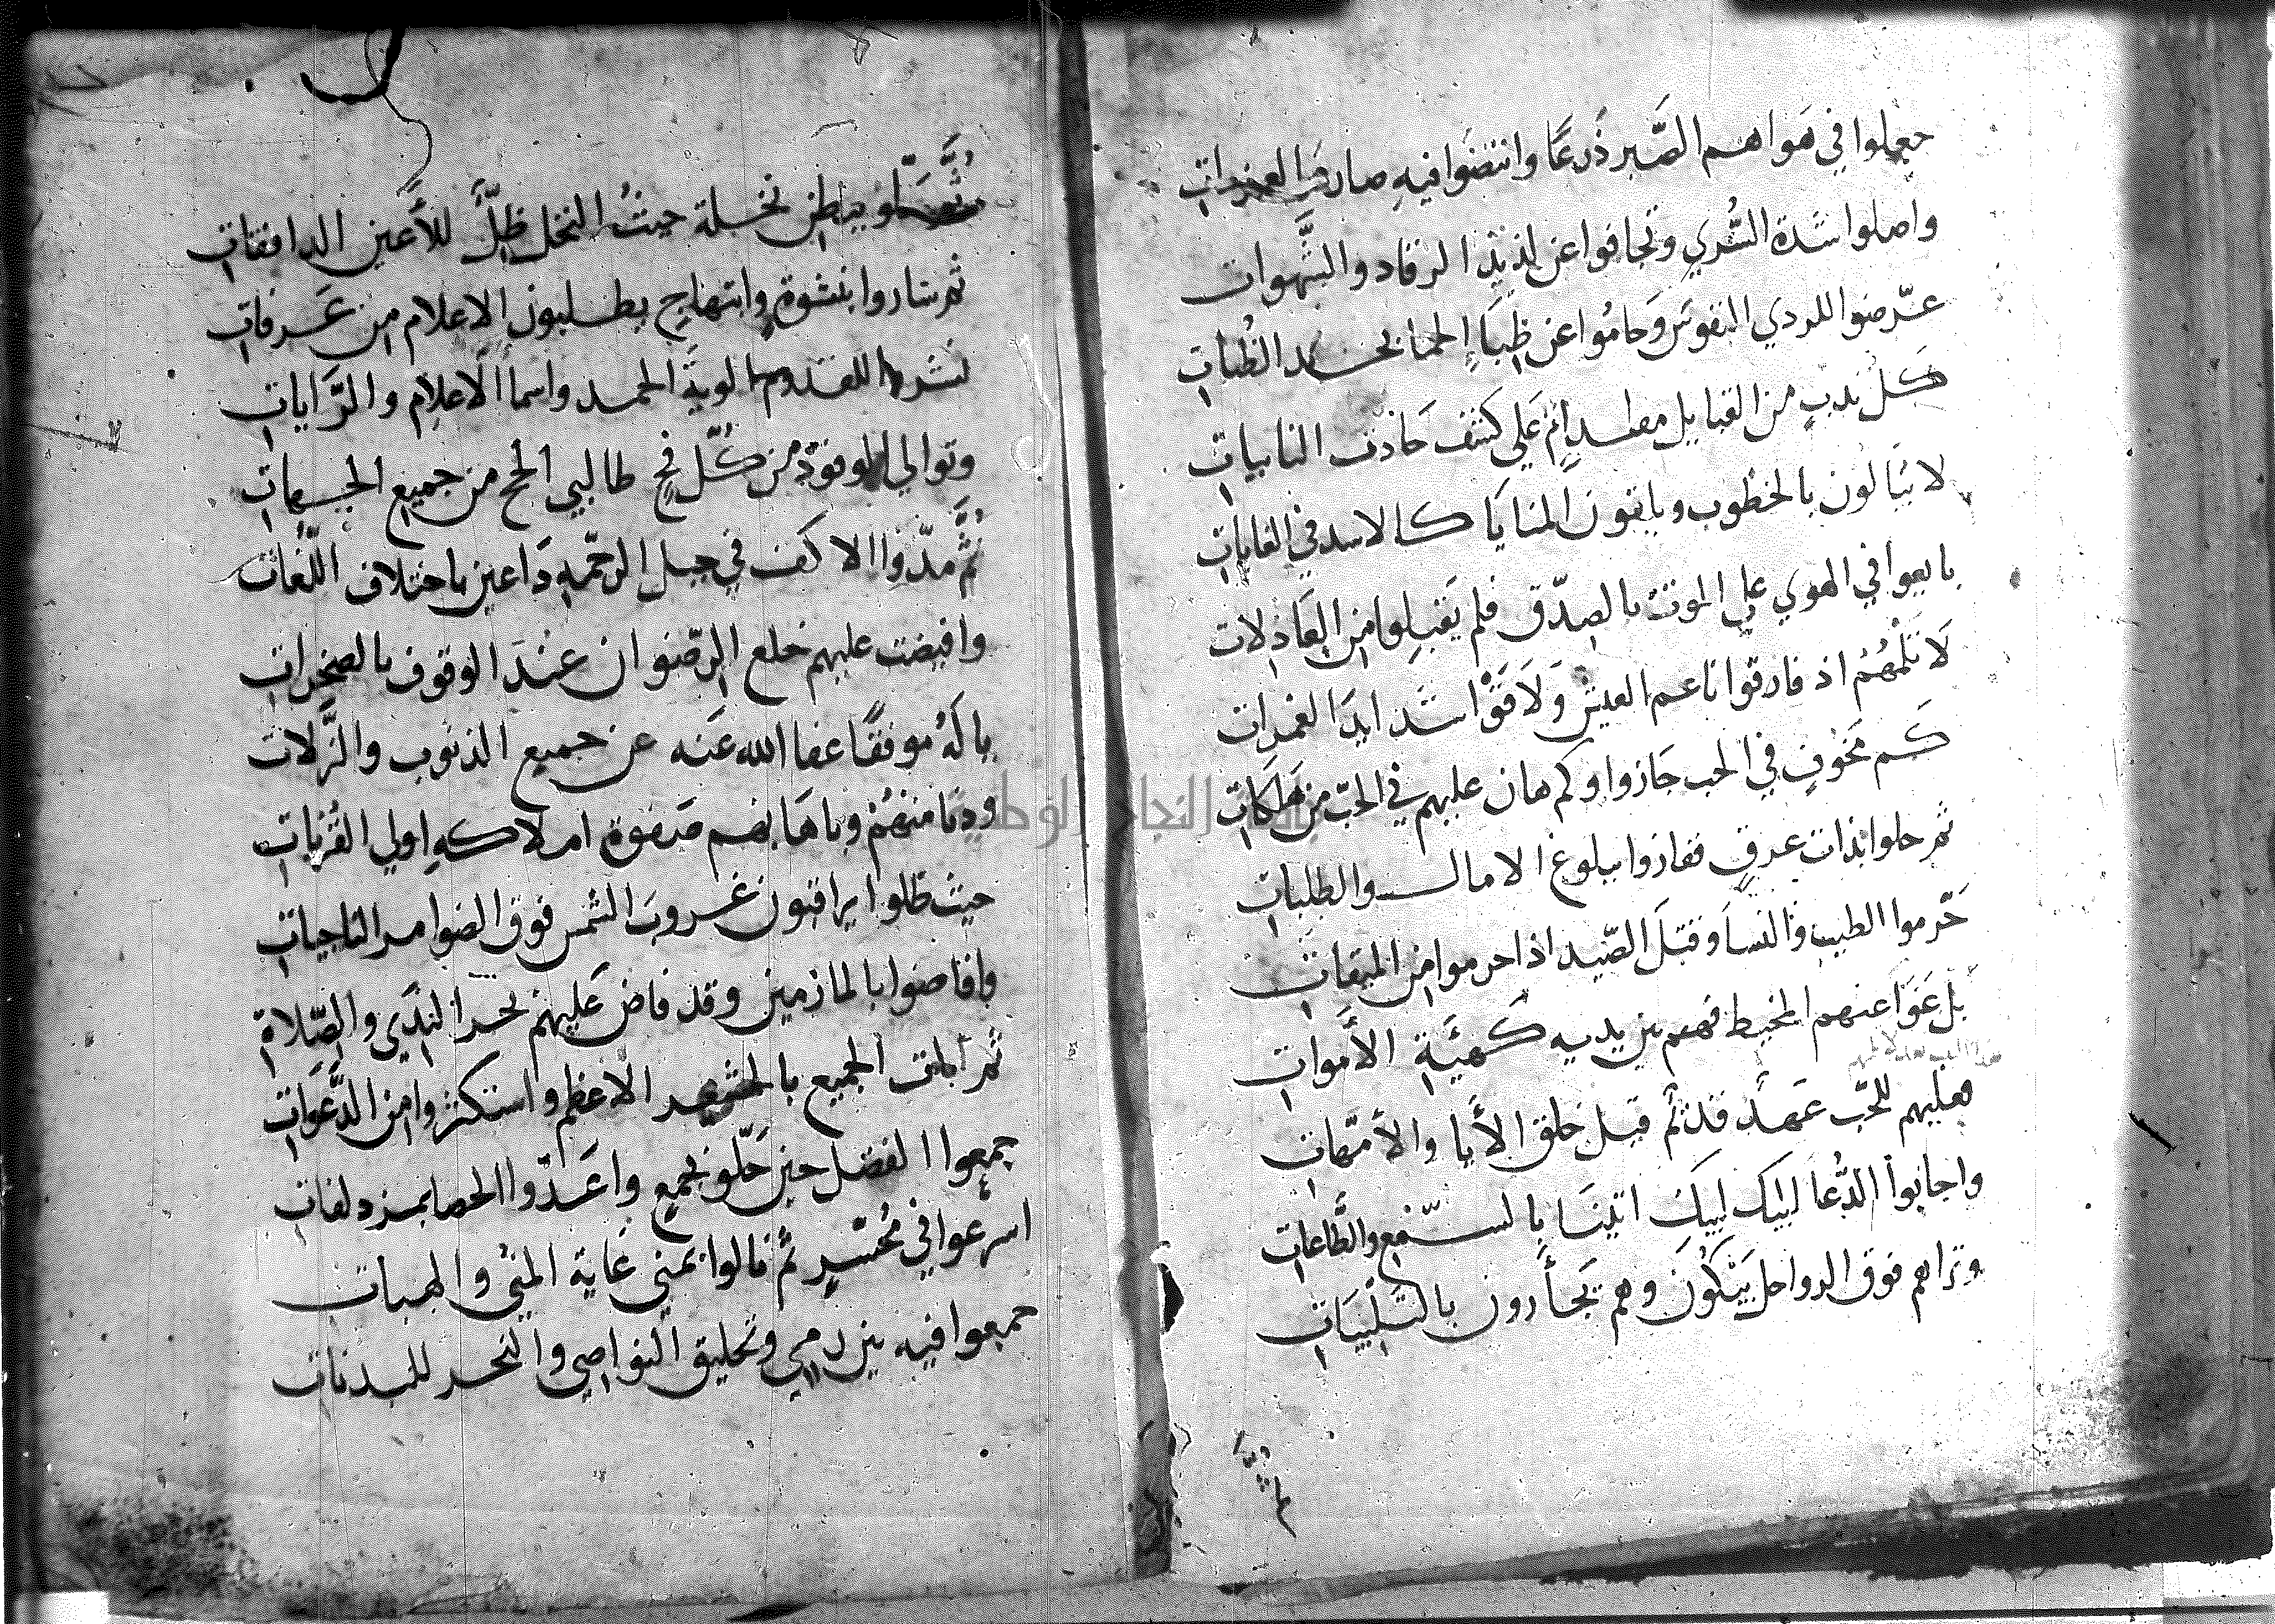 جعلوا في هواهم الصَّبر دَرعًا وانتضوا فيهِ صارم العزمات
واصلوا شدة السُّري وتجافوا عن لذيذ الرقاد والشَّهوات
عرّضوا للردي النفوسَ وَحامُوا عن ظِبَاءِ الحما بحد الظُبات
كل ندبٍ من القبايل مقدامٍ عَلي كشف حَادث النايبات
لا يُبَالون بالخطوب وياتون المنايَا كالاسد في الغابات
بايعوا في الهوي علي الموت بالصِدّق فلم يَقبلوا من العَاذلات
لَا تَلُمْهُمْ اذ فارقوا ناعم العيش وَلَاقَوْا شدايدَ الغمرات
كَم مَخوفٍ في الحب جَازوا وكم هان عليهم في الحبّ من هَلكات
ثم حلوا بذات عرقٍ ففازوا ببلوغ الامال والطلبات
حَرّموا الطيب والنسَا وقتلَ الصّيد اذ احرموا من الميقات
بل عَوَا عنهم المخيط فهم بين يديه كَهيَةِ الأَموات
فعليهم للحّب عَهدٌ قديمٌ قبل خلق الأَبا والأمّهات
واجابوا الدُّعا لبيك لبيكَ اتينَا بالسّمع والطَّاعات
وتراهم فوق الرواحل يَبْكُونَ وهم يَجأَرون بالتَلْبيَاتِ
ثمَّ
حلّو ببطن نخلة حيثُ النخل ظِلٌّ للأَعين الدافقات
ثم ساروا بنشوةٍ وابتهاجٍ يطلبون الاعلام من عَرفات
نشروا للقدوم الويةَ الحمد واسما الَاعلام والرَّايات
وتوالي الوفود من كُلّ فجٍ طالبي الحج من جميع الجهات
ثُمَّ مدّوا الاكف في جبل الرحمةِ دَاعين باختلاف اللُّغات
وافيضت عليهم خلع الرّضوان عندَ الوقوف بالصخرات
يا لَهُ موقفًا عفا الله عَنه عن جميع الذنوب والزَّلات
ودنا منهُمْ وباهَا بهم صَفوة املاكهِ اولي القُرْبات
حيث ظلوا يراقبون غروبَ الشمس فوق الضوامر الناجيات
وافاضوا بالمازمين وقد فاض عَليهم بحر النِدَي والصِّلات
ثم بات الجميع بالمشعر الاعظم واستكثروا من الدَّعَوَات
جمعوا الفضل حين حَلّو بجمعٍ واعَدّوا الحصا بمزدلفات
اسرعوا في مُحَسّرٍ ثُم نالوا بمني غاية المنَي والهبات
جمعوا فيه بين رمي وتحليق النواصي والنحر للبدنات